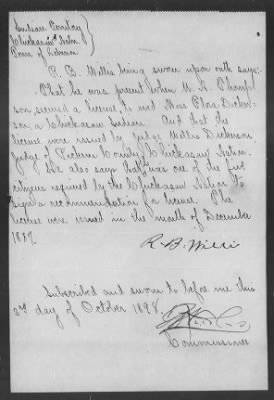 Indian Territory
Chickasaw Nation
Town of Tishomingo
R. B. Willis being sworn upon oath says:
That he was present when W. H. Thomp-
son secured a license to wed Miss Flora Dicker-
son a Chickasaw Indian. And that the
license were issued by Judge Willis Dickerson
Judge of Pickens County Chickasaw Nation.
He also says that was one of the five
citizens required by the Chickasaw Nation to
sign a recommendation for license. The
license were issued in the month of December
R. B. Willis
Subscribed and sworn to before me this
3rd day of October 1898
Commissioner